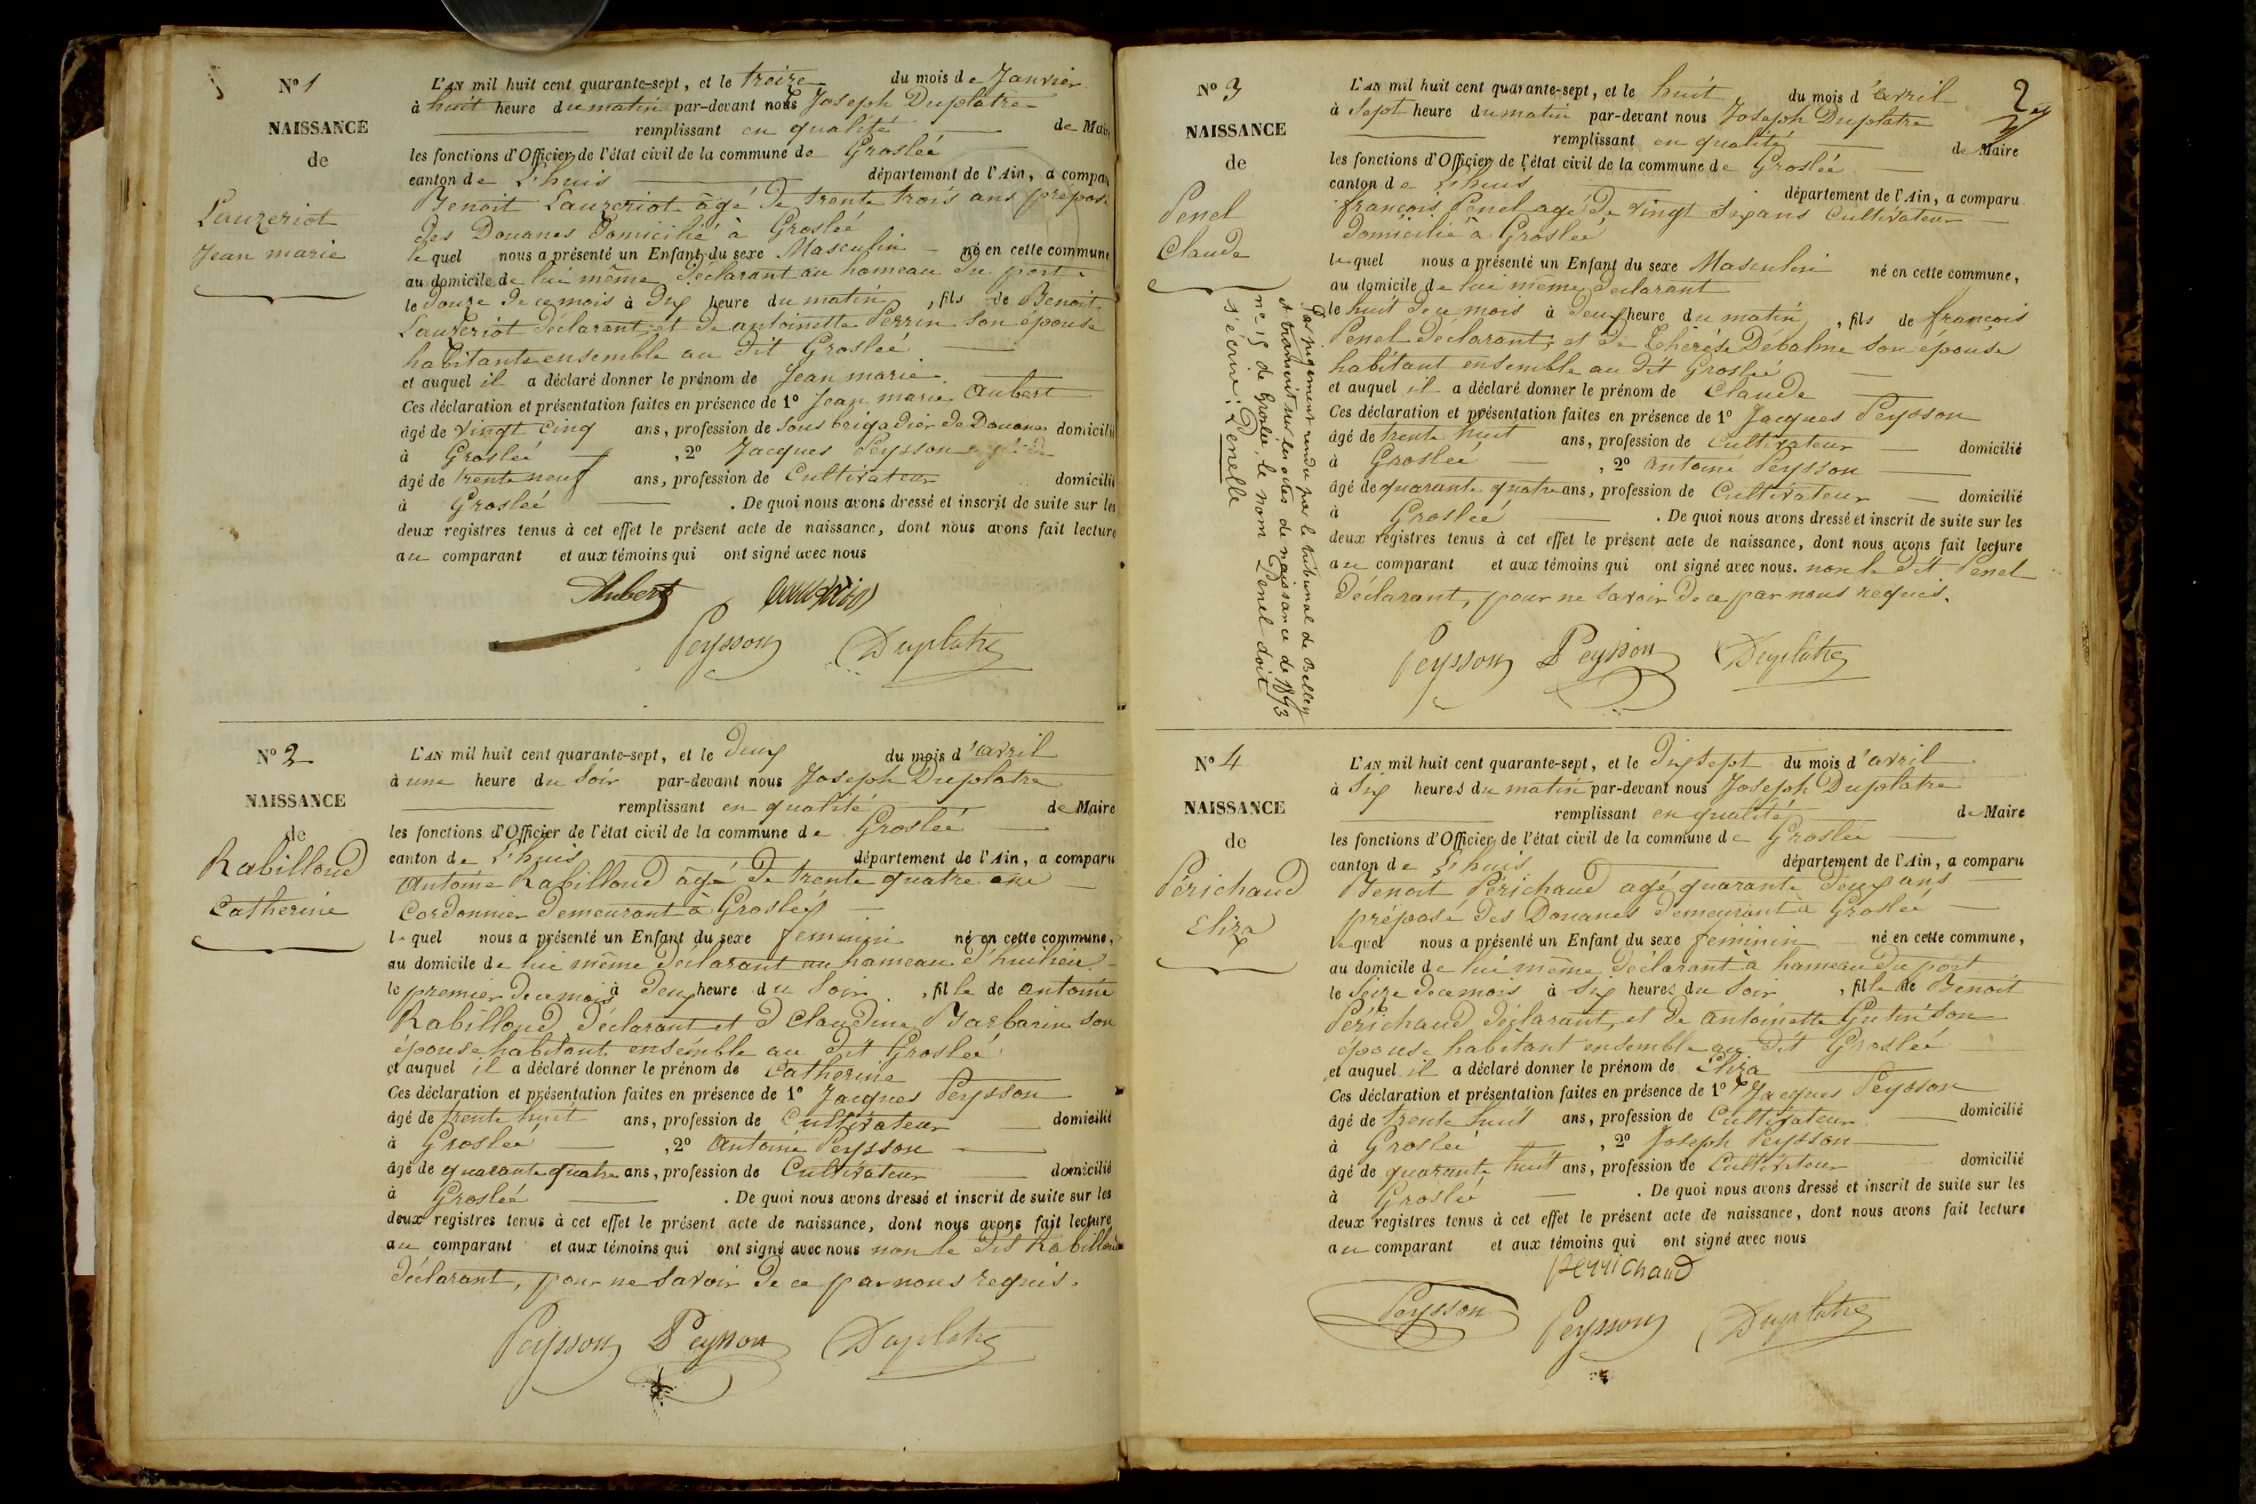 Nº 1
NAISSANCE
de
Lauzeriot
Jean marie
L'AN mil huit cent quarante-sept, et le treize du mois de Janvier
à huit heure du matin par-devant nous Joseph Duplatre
remplissant en qualité de Maire
les fonctions d'Officier de l'état civil de la commune de Groslée
canton de L'huis département de l'Ain, a compa
Benoit Lauzeriot âgé de trente trois ans prépos
des Douanes domicilié à Groslée
le quel nous a présenté un Enfant du sexe Masculin né en cette commune
au domicile de lui même déclarant au hameau du port
le douze de ce mois à dix heure du matin, fils de Benoit
Lauzeriot déclarant, et de antoinette Perrin son épouse
habitante ensemble au dit Groslée
et auquel il a déclaré donner le prénom de Jean marie
Ces déclaration et présentation faites en présence de 1º Jean marie Aubert
âgé de vingt cinq ans, profession de sous brigadier de Douanes domicilié
à Groslée, 2º Jacques Peysson
âgé de trente neuf ans, profession de Cultivateur domicilié
à Groslée. De quoi nous avons dressé et inscrit de suite sur les
deux registres tenus à cet effet le présent acte de naissance, dont nous avons fait lecture
au comparant et aux témoins qui ont signé avec nous
Aubert
Peysson Duplatre
Nº 2
NAISSANCE
de
Rabilloud
Catherine
L'AN mil huit cent quarante-sept, et le deux du mois d'avril
à une heure du soir par-devant nous Joseph Duplatre
remplissant en qualité de Maire
les fonctions d'Officier de l'état civil de la commune de Groslée
canton de L'huis département de l'Ain, a comparu
Antoine Rabilloud âgé de trente quatre ans
Cordonnier demeurant à Groslée
le quel nous a présenté un Enfant du sexe feminin né en cette commune,
au domicile de lui même déclarant au hameau d'huilieu
le premier de ce mois à deux heure du soir, fille de antoine
Rabilloud déclarant et d Claudine Barbarin son
épouse habitant ensemble au dit Groslée
et auquel il a déclaré donner le prénom de Catherine
Ces déclaration et présentation faites en présence de 1º Jacques Peysson
âgé de trente huit ans, profession de Cultivateur domicilié
à Groslée, 2º Antoine Peysson
âgé de quarante quatre ans, profession de Cultivateur domicilié
à Groslée. De quoi nous avons dressé et inscrit de suite sur les
deux registres tenus à cet effet le présent acte de naissance, dont nous avons fait lecture
au comparant et aux témoins qui ont signé avec nous non le dit Rabilloud
déclarant, pour ne savoir de ce par nous requis.
Peysson Peysson Duplatre
2
Nº 3
NAISSANCE
de
Penel
Claude
Par jugement rendu par le tribunal de Belley
et transcrit sur les actes de naissance de 1893
nº 15 de Groslée, le nom Penel doit
s'écrire: Penelle
L'AN mil huit cent quarante-sept, et le huit du mois d'avril
à Sept heure du matin par-devant nous Joseph Duplatre
remplissant en qualité de Maire
les fonctions d'Officier de l'état civil de la commune de Groslée
canton de L'huis département de l'Ain, a comparu
françois Penel agé de vingt Six ans Cultivateur
domicilié à Groslée
le quel nous a présenté un Enfant du sexe Masculin né en cette commune,
au domicile de lui même déclarant
le huit de ce mois à deux heure du matin, fils de françois
Penel déclarant, et de Thérèse Débalme son épouse
habitant ensemble au dit Groslée
et auquel il a déclaré donner le prénom de Claude
Ces déclaration et présentation faites en présence de 1º Jacques Peysson
âgé de trente huit ans, profession de Cultivateur domicilié
à Groslée, 2º Antoine Peysson
âgé de quarante quatre ans, profession de Cultivateur domicilié
à Groslée. De quoi nous avons dressé et inscrit de suite sur les
deux registres tenus à cet effet le présent acte de naissance, dont nous avons fait lecture
au comparant et aux témoins qui ont signé avec nous. non le dit Penel
déclarant, pour ne savoir de ce par nous requis.
Peysson Peysson Duplatre
Nº 4
NAISSANCE
de
Périchaud
Eliza
L'AN mil huit cent quarante-sept, et le dix sept du mois d'avril
à Six heures du matin par-devant nous Joseph Duplatre
remplissant en qualité de Maire
les fonctions d'Officier de l'état civil de la commune de Groslée
canton de L'huis département de l'Ain, a comparu
Benoit Périchaud agé quarante deux ans
préposé des Douanes demeurant à Groslée
le quel nous a présenté un Enfant du sexe feminin né en cette commune,
au domicile de lui même déclarant à hameau du port
le Seize de ce mois à Six heures du soir, fille de Benoit
Périchaud déclarant, et de Antoinette Gutin son
épouse habitant ensemble au dit Groslée
et auquel il a déclaré donner le prénom de Eliza
Ces déclaration et présentation faites en présence de 1º Jacques Peysson
âgé de trente huit ans, profession de Cultivateur domicilié
à Groslée, 2º Joseph Peysson
âgé de quarante huit ans, profession de Cultivateur domicilié
à Groslée. De quoi nous avons dressé et inscrit de suite sur les
deux registres tenus à cet effet le présent acte de naissance, dont nous avons fait lecture
au comparant et aux témoins qui ont signé avec nous
Perrichaud
Peysson Peysson Duplatre